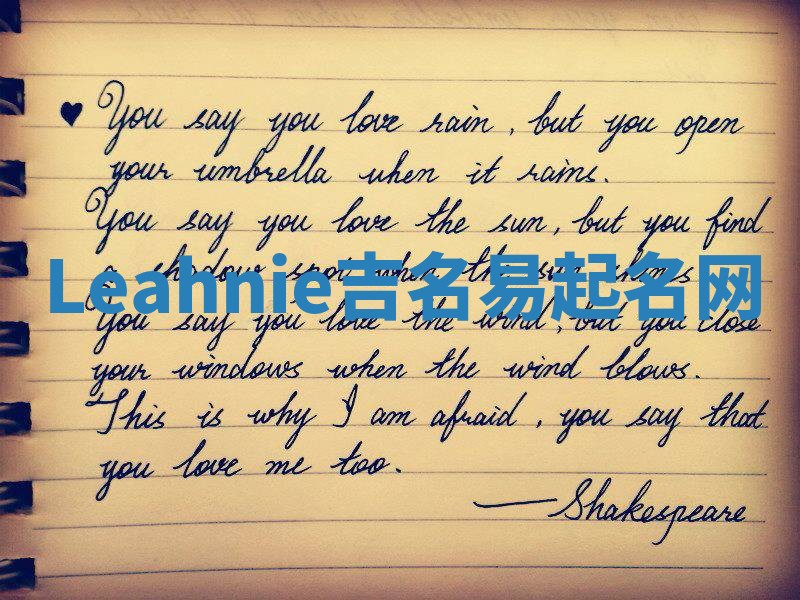 ♥ You say you love rain, but you open
your umbrella when it rains.
You say you love the sun, but you find
a shadow spot when the sun shines
Leahnie吉名易起名网
You say you love the wind, but you close
your windows when the wind blows.
This is why I am afraid, you say that
you love me too.
—Shakespeare